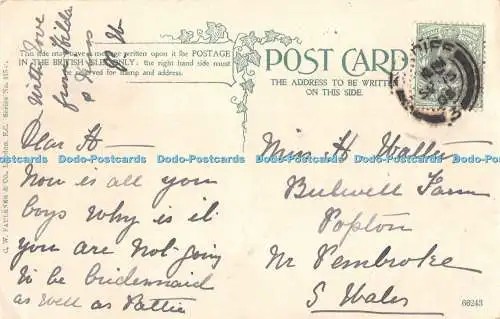 This side may have a message written upon it for POSTAGE
IN THE BRITISH ISLES ONLY: the right hand side must
be reserved for stamp and address.
POST CARD
THE ADDRESS TO BE WRITTEN
ON THIS SIDE.
With love
from
C. W. FAULKNER & CO., London, E.C. Series No.
Dear H —
Now is all you
boys why is it
you are not going
to be bridesmaid
as well as Pattie
Miss H
Bulwell Farm
Popton
Nr Pembroke
S Wales
68243
Dodo-Postcards Dodo-Postcards Dodo-Postcards Dodo-Postcards Dodo-Postcards